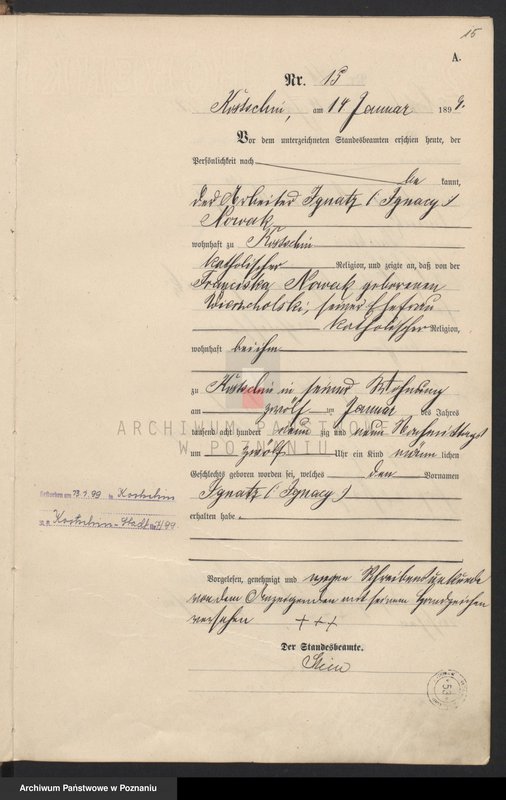 15
A.
Nr. 15
Kostschin, am 14 Januar 1899.
Vor dem unterzeichneten Standesbeamten erschien heute, der
Persönlichkeit nach
be kannt,
der Arbeiter Ignatz (Ignacy)
Nowak
wohnhaft zu Kostschin
katholischer Religion, und zeigte an, daß von der
Franciska Nowak geborenen
seiner Ehefrau
katholischer Religion,
wohnhaft bei ihm
zu Kostschin in seiner Wohnung
am zwölf ten Januar des Jahres
tausend acht hundert neun zig und neun Vormittags
um zwölf Uhr ein Kind männ lichen
Geschlechts geboren worden sei, welches den Vornamen
Ignatz (Ignacy)
erhalten habe.
Gestorben am 23.7.99 in Kostschin
Kostschin-Stadt
Vorgelesen, genehmigt und wegen Schreibensunkunde
von dem Anzeigenden mit seinem Handzeichen
versehen +++
Der Standesbeamte.
ARCHIWUM PAŃSTWOWE
W POZNANIU
53
Archiwum Państwowe w Poznaniu